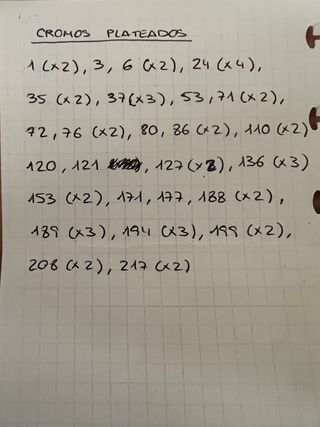 CROMOS PLATEADOS
1 (x2), 3, 6 (x2), 24 (x4),
35 (x2), 37(x3), 53, 71 (x2),
72, 76 (x2), 80, 86 (x2), 110 (x2)
120, 121 , 127 (x2), 136 (x3)
153 (x2), 171, 177, 188 (x2),
189 (x3), 194 (x3), 199 (x2),
208 (x2), 217 (x2)